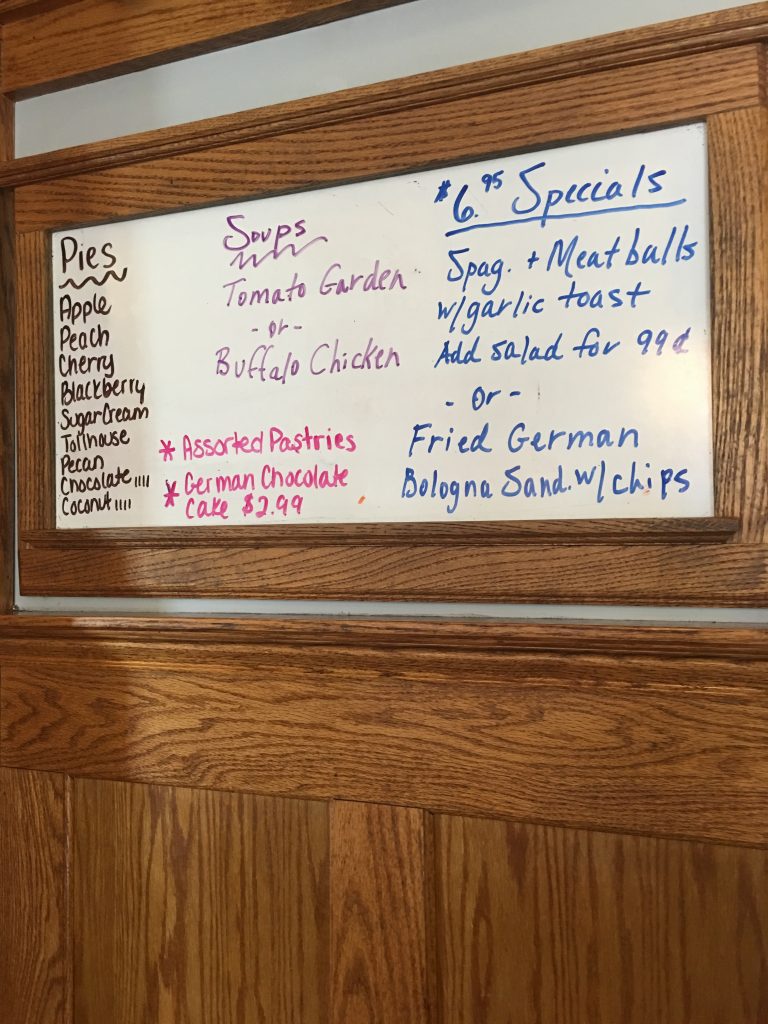 Pies
Apple
Peach
Cherry
Blackberry
SugarCream
Tollhouse
Pecan
Chocolate IIII
Coconut IIII
Soups
Tomato Garden
- or -
Buffalo Chicken
* Assorted Pastries
* German Chocolate
Cake $2.99
$6.95 Specials
Spag. + Meatballs
w/garlic toast
Add salad for 99¢
- Or -
Fried German
Bologna Sand. w/ chips